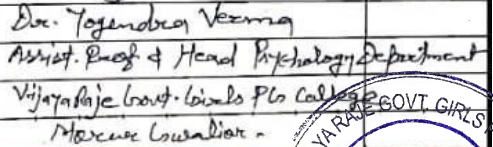 Dr. Yogendra Verma
Assist. Prof. & Head Psychology Department
Vijaya Raje Govt. Girls PG College
Morar Gwalior.
YA RAJE GOVT. GIRLS